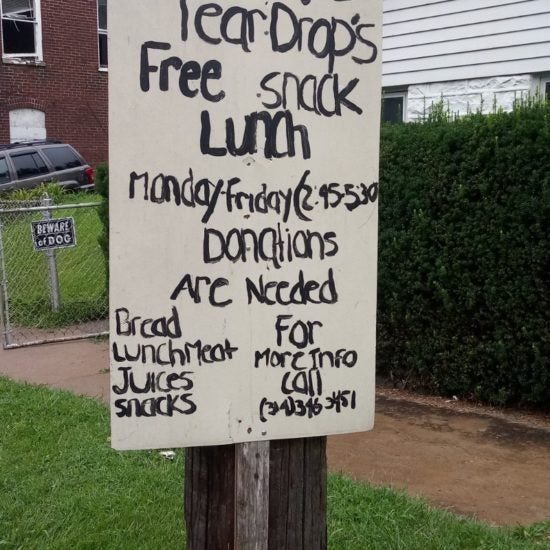 Tear Drop's
Free snack
Lunch
Monday-Friday (2:45-5:30
Donations
Are Needed
Bread
LunchMeat
Juices
snacks
For
More Info
Call
(314)346 3451
BEWARE
of DOG